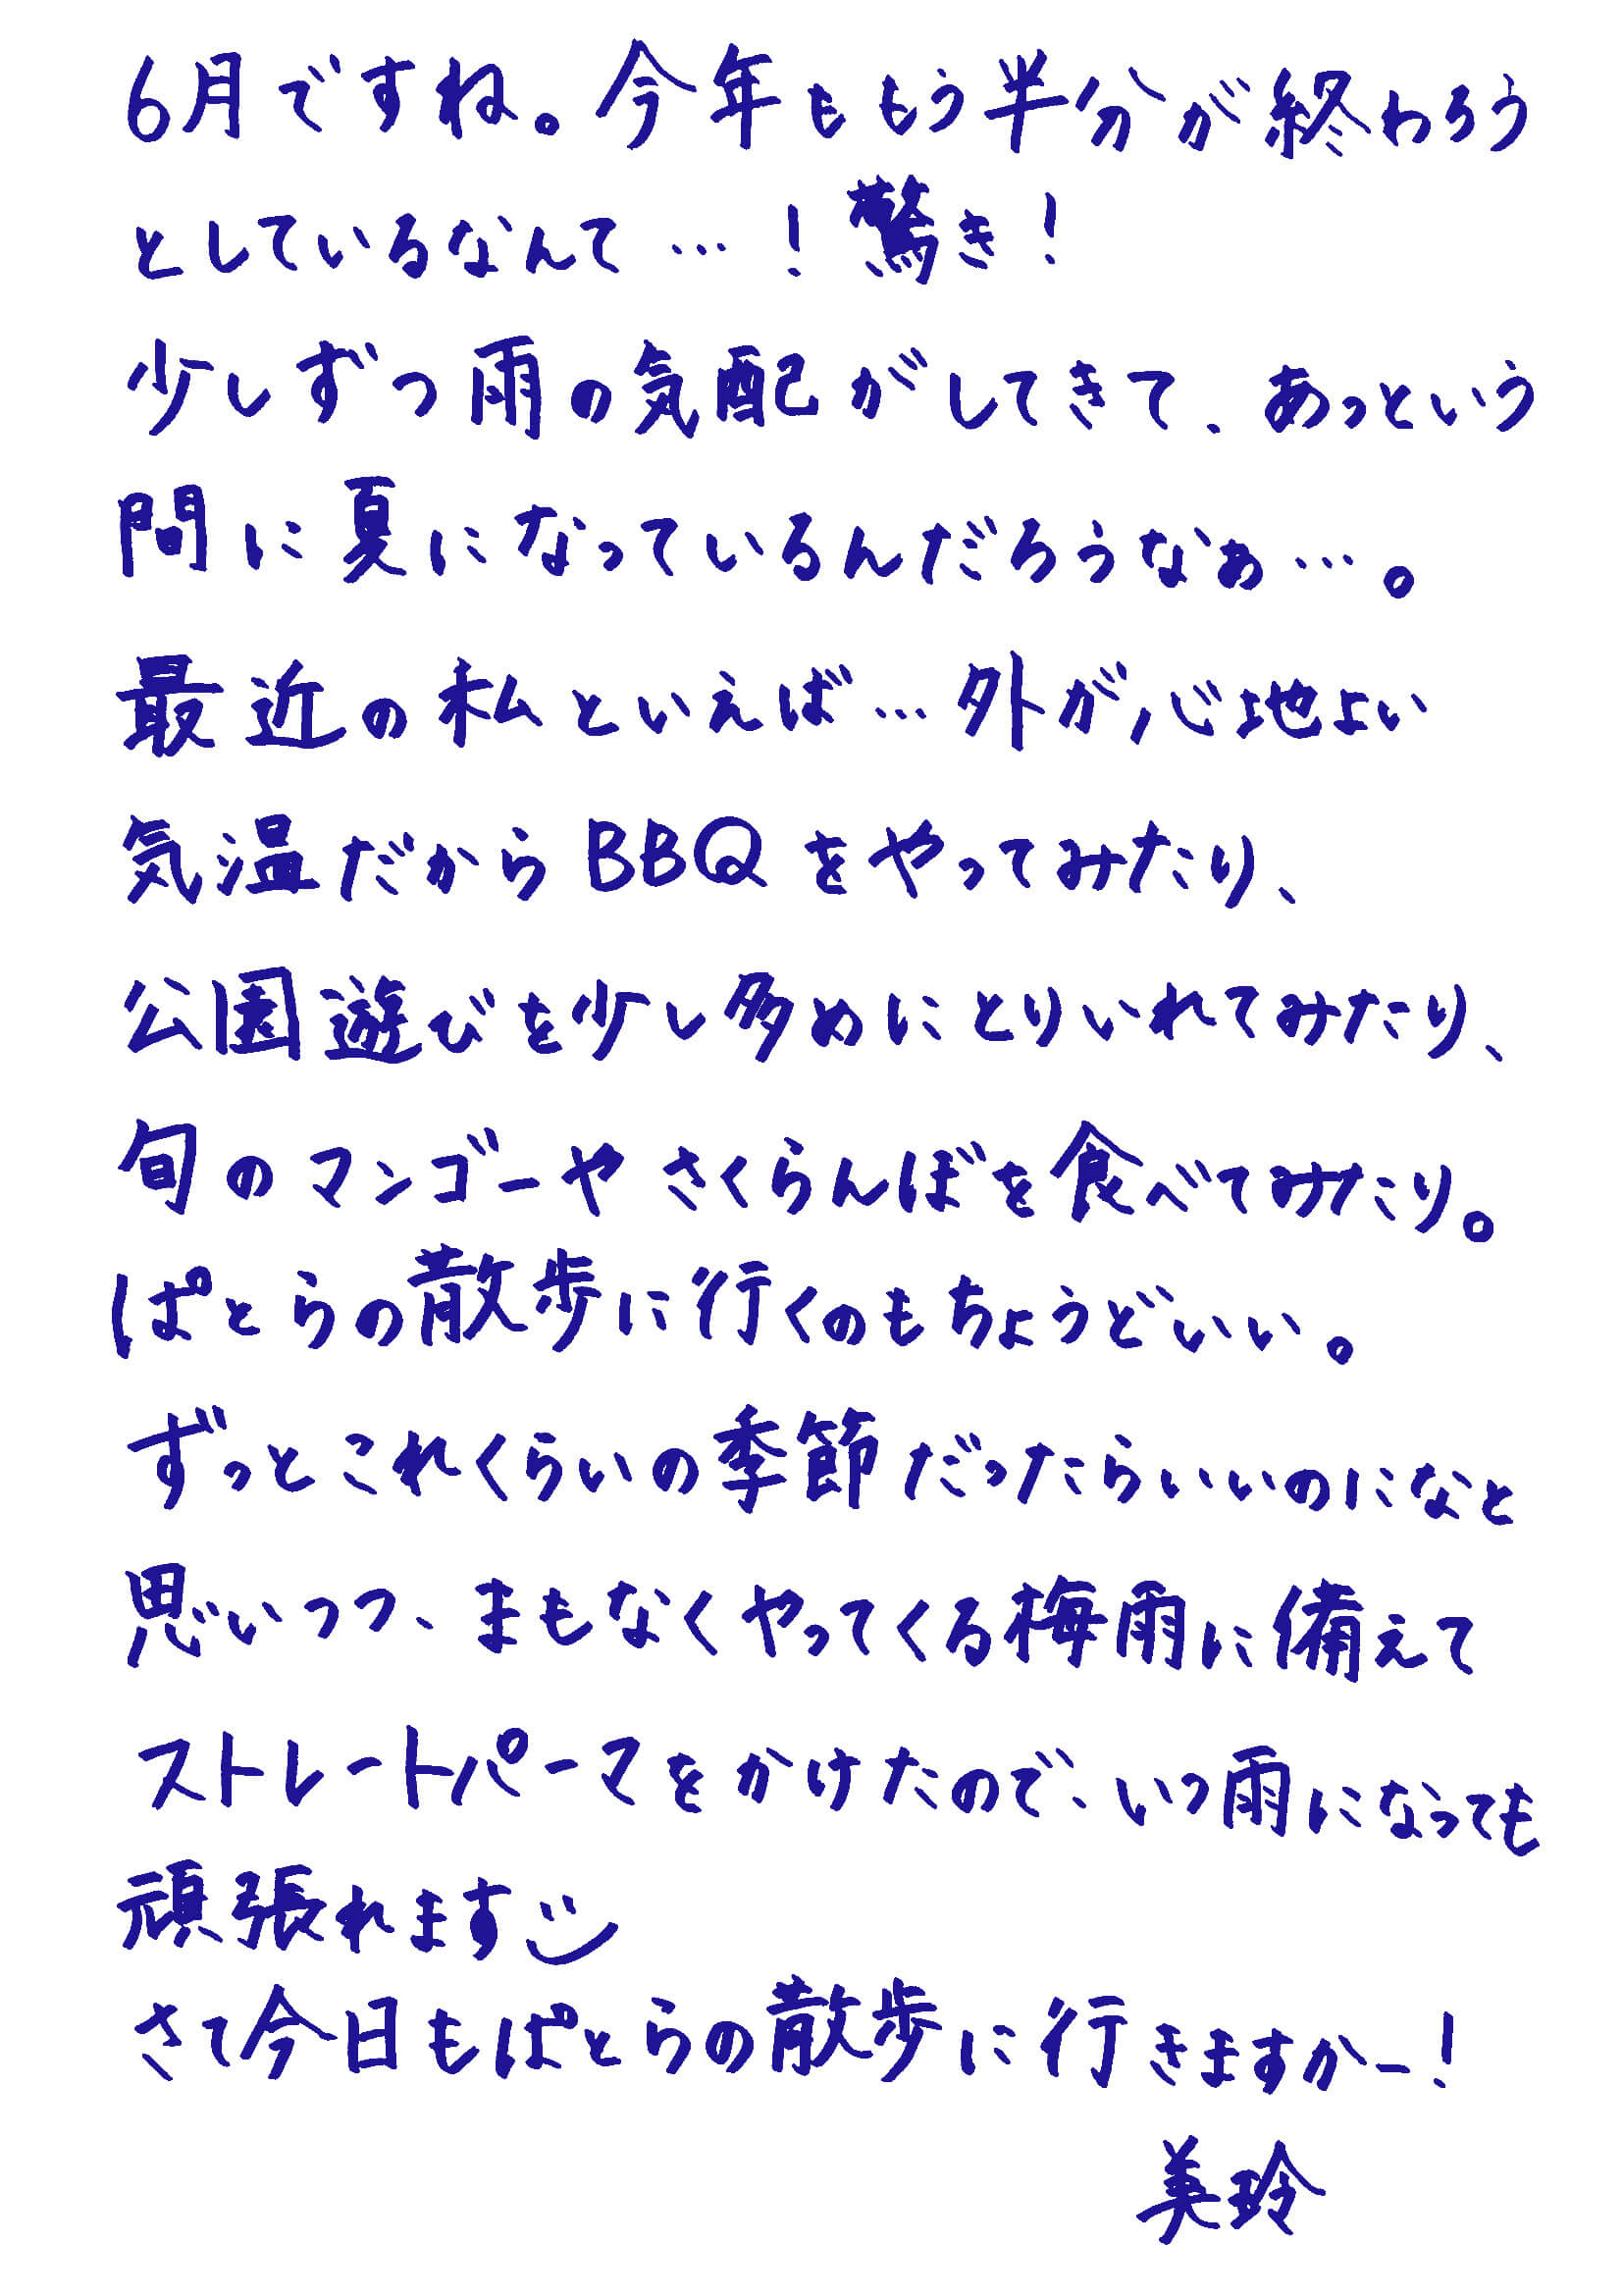 6月ですね。今年ももう半分が終わろう
としているなんて…！驚き！
少しずつ雨の気配がしてきて、あっという
間に夏になっているんだろうなぁ…。
最近の私といえば…外が心地よい
気温だからBBQをやってみたり、
公園遊びを少し多めにとりいれてみたり、
旬のマンゴーやさくらんぼを食べてみたり。
ぱとらの散歩に行くのもちょうどいい。
ずっとこれくらいの季節だったらいいのになと
思いつつ、まもなくやってくる梅雨に備えて
ストレートパーマをかけたので、いつ雨になっても
頑張れます
さて今日もぱとらの散歩に行きますかー！
美玲